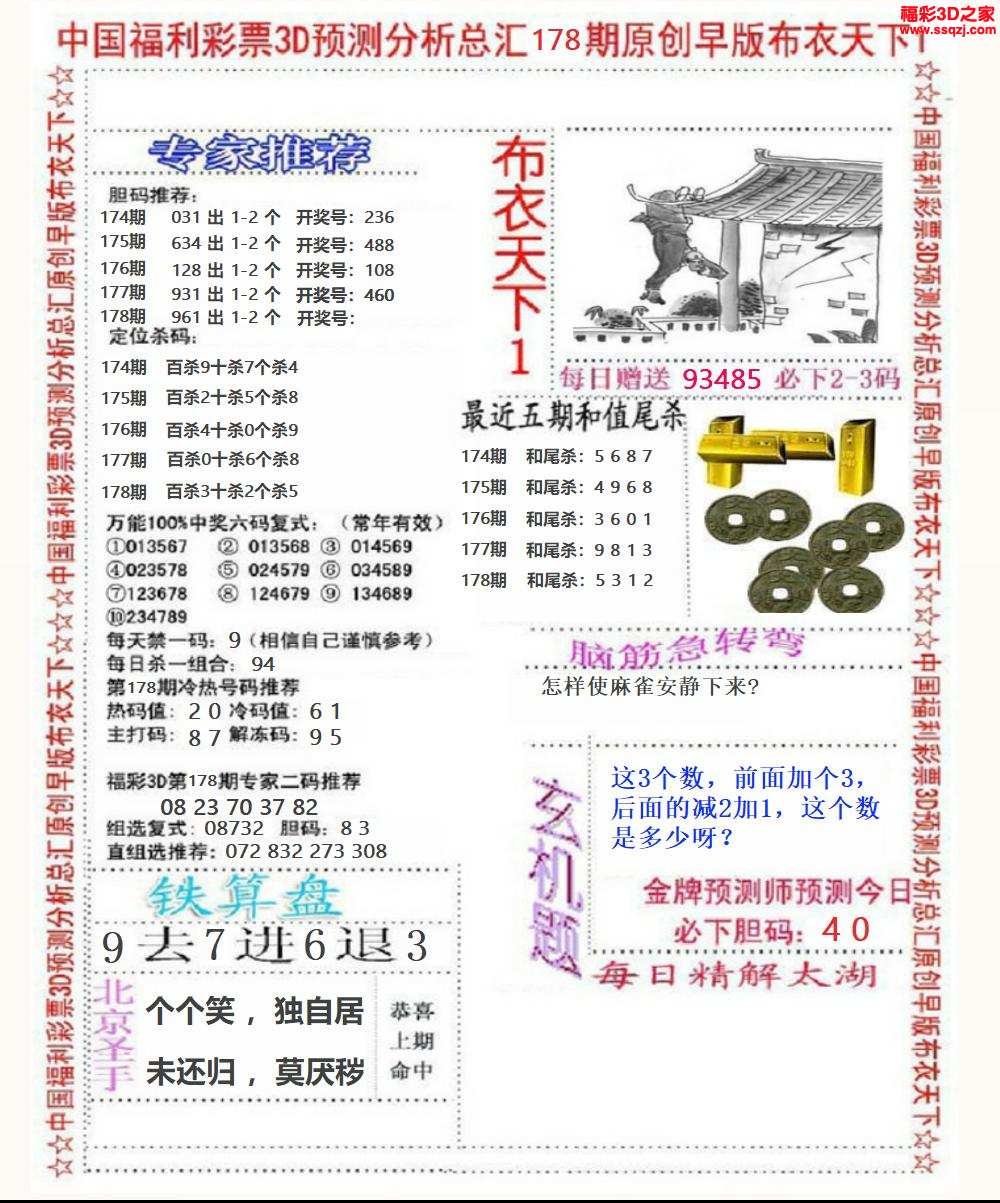 福彩3D之家
www.ssqzj.com
中国福利彩票3D预测分析总汇178期原创早版布衣天下1
☆☆中国福利彩票3D预测分析总汇原创早版布衣天下☆☆中国福利彩票3D预测分析总汇原创早版布衣天下☆☆
专家推荐
胆码推荐:
174期 031 出 1-2 个 开奖号: 236
175期 634 出 1-2 个 开奖号: 488
176期 128 出 1-2 个 开奖号: 108
177期 931 出 1-2 个 开奖号: 460
178期 961 出 1-2 个 开奖号:
定位杀码:
174期 百杀9十杀7个杀4
175期 百杀2十杀5个杀8
176期 百杀4十杀0个杀9
177期 百杀0十杀6个杀8
178期 百杀3十杀2个杀5
万能100%中奖六码复式: （常年有效）
①013567 ② 013568 ③ 014569
④023578 ⑤ 024579 ⑥ 034589
⑦123678 ⑧ 124679 ⑨ 134689
⑩234789
每天禁一码: 9（相信自己谨慎参考）
每日杀一组合: 94
第178期冷热号码推荐
热码值: 2 0 冷码值: 6 1
主打码: 8 7 解冻码: 9 5
福彩3D第178期专家二码推荐
08 23 70 37 82
组选复式: 08732 胆码: 8 3
直组选推荐: 072 832 273 308
铁算盘
9去7进6退3
北京圣手
个个笑，独自居
未还归，莫厌秽
恭喜
上期
命中
布衣天下1
每日赠送 93485 必下2-3码
最近五期和值尾杀
174期 和尾杀: 5 6 8 7
175期 和尾杀: 4 9 6 8
176期 和尾杀: 3 6 0 1
177期 和尾杀: 9 8 1 3
178期 和尾杀: 5 3 1 2
脑筋急转弯
怎样使麻雀安静下来?
玄机题
这3个数，前面加个3，
后面的减2加1，这个数
是多少呀?
金牌预测师预测今日
必下胆码: 4 0
每日精解太湖
☆☆中国福利彩票3D预测分析总汇原创早版布衣天下☆☆中国福利彩票3D预测分析总汇原创早版布衣天下☆☆